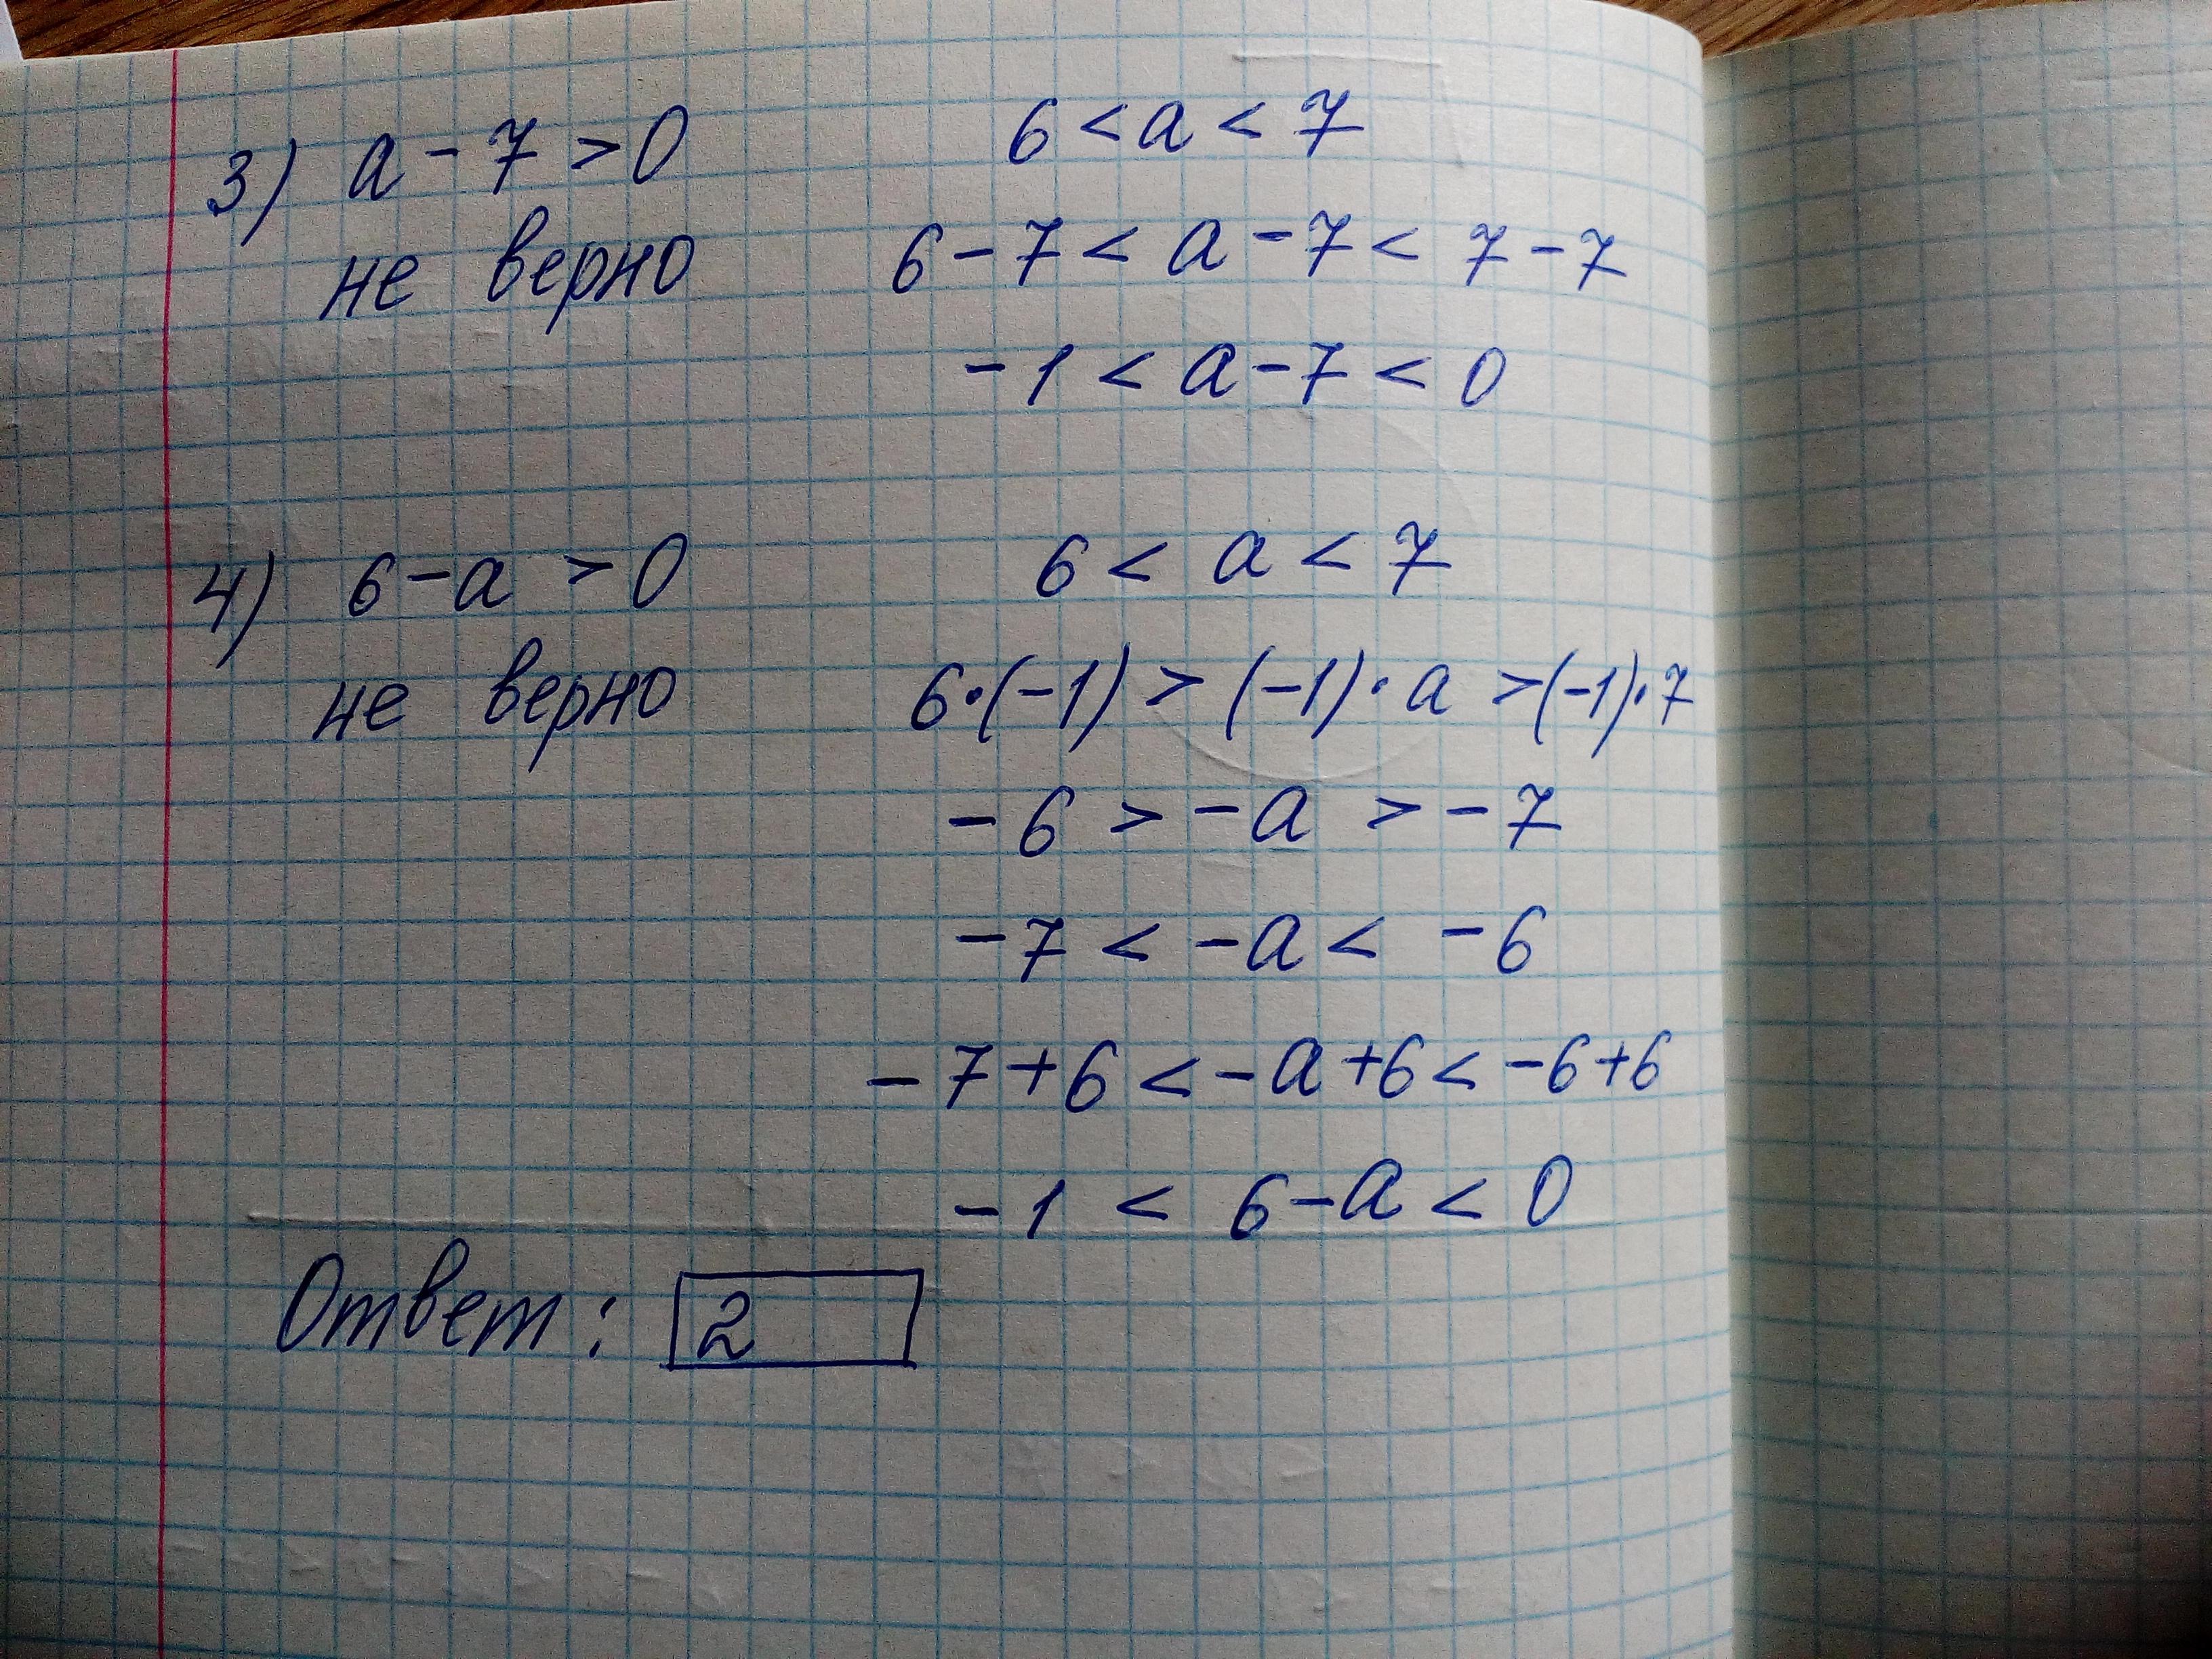 3) a - 7 > 0
не верно
6 < a < 7
6 - 7 < a - 7 < 7 - 7
- 1 < a - 7 < 0
4) 6 - a > 0
не верно
6 < a < 7
6·(-1) > (-1)·a > (-1)·7
- 6 > - a > - 7
- 7 < - a < - 6
- 7 + 6 < - a + 6 < - 6 + 6
- 1 < 6 - a < 0
Ответ: 2